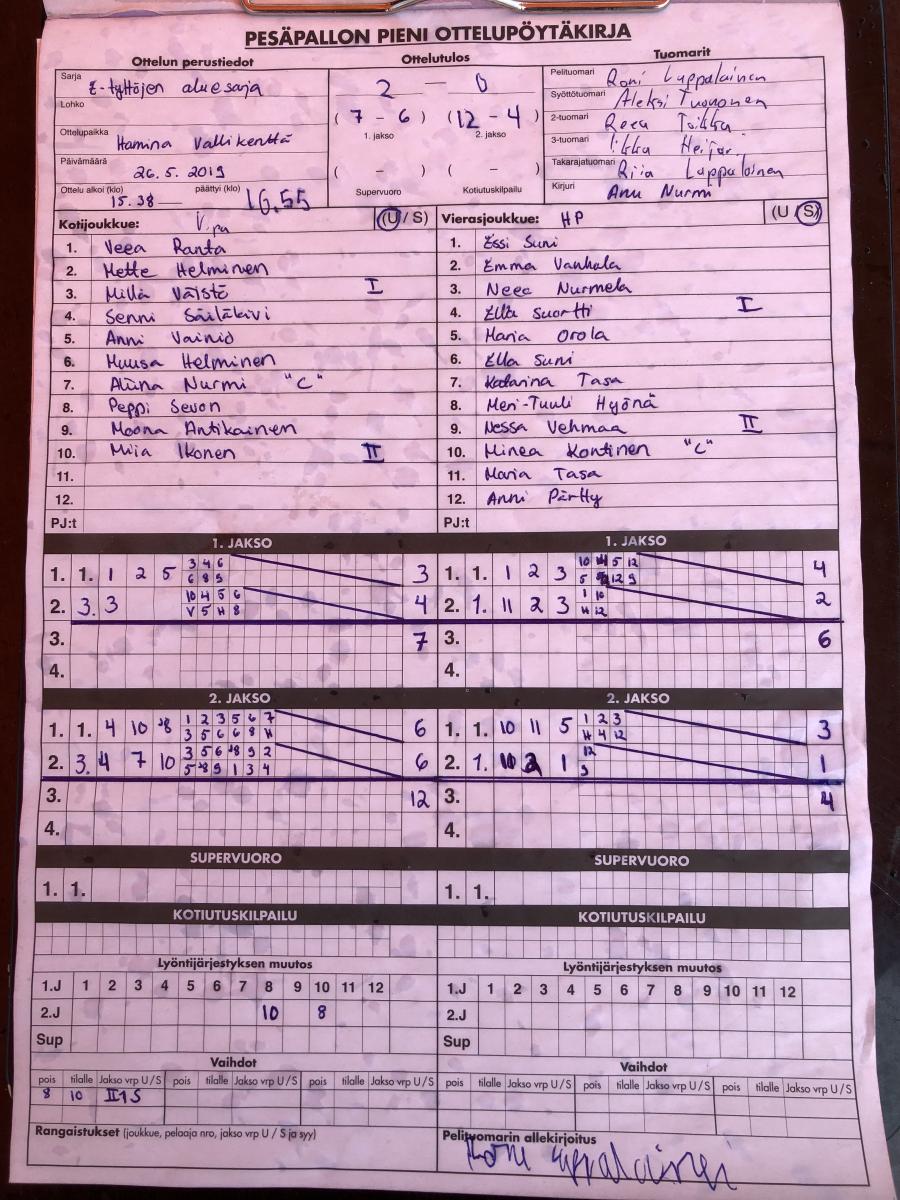 PESÄPALLON PIENI OTTELUPÖYTÄKIRJA
Ottelun perustiedot
Sarja E-tyttöjen aluesarja
Lohko
Ottelupaikka Hamina Vallikenttä
Päivämäärä 26.5.2019
Ottelu alkoi (klo) 15.38 päättyi (klo) 16.55
Ottelutulos
2 — 0
( 7 - 6 ) (12 - 4 )
1. jakso 2. jakso
( - ) ( - )
Supervuoro Kotiutuskilpailu
Tuomarit
Pelituomari Roni Lappalainen
Syöttötuomari Aleksi Tuononen
2-tuomari Reea Toikka
3-tuomari Iikka
Takarajatuomari Riia Lappalainen
Kirjuri Anu Nurmi
Kotijoukkue: V.pa (U / S)
1. Veea Ranta
2. Mette Helminen
3. Milla Väistö I
4. Senni Säiläkivi
5. Anni Vainio
6. Muusa Helminen
7. Aliina Nurmi "C"
8. Peppi Sevon
9. Moona Antikainen
10. Miia Ikonen II
11.
12.
PJ:t
Vierasjoukkue: HP (U / S)
1. Essi Suni
2. Emma Vanhala
3. Neea Nurmela
4. Ella Suortti I
5. Maria Orola
6. Ella Suni
7. Katarina Tasa
8. Meri-Tuuli Hyönä
9. Nessa Vehmaa II
10. Minea Kontinen "C"
11. Maria Tasa
12. Anni Pärtty
PJ:t
1. JAKSO
1. 1. 1 2 5 3 4 6 3
6 8 9
2. 3. 3 10 4 5 6 4
V 5 H 8
3. 7
4.
1. JAKSO
1. 1. 1 2 3 10 5 12 4
5 12 9
2. 1. 11 2 3 1 10 2
H 12
3. 6
4.
2. JAKSO
1. 1. 4 10 *8 1 2 3 5 6 7 6
3 5 6 6 8 H
2. 3. 4 7 10 3 5 6 *8 9 2 6
5 *8 9 1 3 4
3. 12
4.
2. JAKSO
1. 1. 10 11 5 1 2 3 3
H 4 12
2. 1. 10 2 1 12 1
9
3. 4
4.
SUPERVUORO
1. 1.
SUPERVUORO
1. 1.
KOTIUTUSKILPAILU
KOTIUTUSKILPAILU
Lyöntijärjestyksen muutos
1.J 1 2 3 4 5 6 7 8 9 10 11 12
2.J 10 8
Sup
Lyöntijärjestyksen muutos
1.J 1 2 3 4 5 6 7 8 9 10 11 12
2.J
Sup
Vaihdot
pois tilalle Jakso vrp U / S pois tilalle Jakso vrp U / S pois tilalle Jakso vrp U / S
8 10 II 1 S
Vaihdot
pois tilalle Jakso vrp U / S pois tilalle Jakso vrp U / S pois tilalle Jakso vrp U / S
Rangaistukset (joukkue, pelaaja nro, jakso vrp U / S ja syy)
Pelituomarin allekirjoitus
Roni Lappalainen